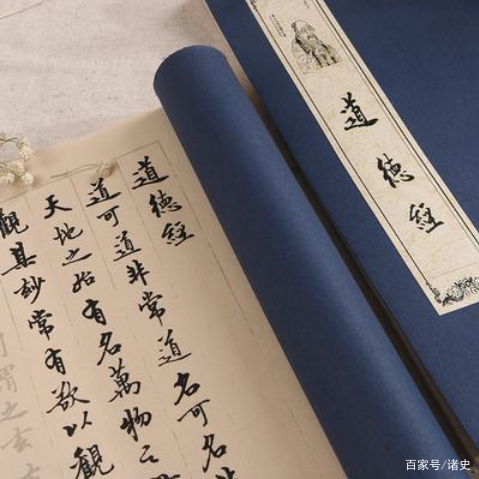 道德經
道德經
道可道非常道名可名
天地之始有名萬物之
觀其妙常有欲以觀
謂之玄
百家号/诸史